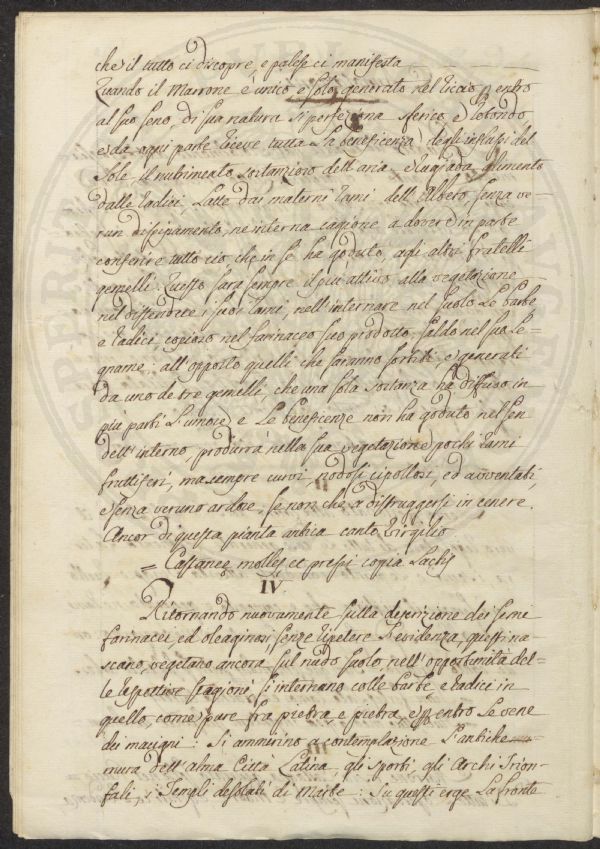 che il tutto ci discopre, e palese ci manifesta
Quando il Marrone è unico e solo generato nel riccio, entro
al suo seno, di sua natura si perfeziona sferico, e rotondo
e da ogni parte riceve tutta la beneficenza degli influssi del
Sole il nutrimento sostanzioso dell'aria e rugiada, alimento
dalle radici, Latte dai materni rami dell'Albero, senza ve-
run dissipamento, ne interna cagione a dovere in parte
conferire tutto ciò che in se ha goduto, agli altri fratelli
gemelli. Questo sara sempre il piu attivo alla vegetazione
nel distendere i suoi rami, nell'internare nel suolo Le barbe
e radici, copioso nel farinaceo suo prodotto, saldo nel suo Le-
gname; all'opposto quelli che saranno sortiti, e generati
da uno de tre gemelli, che una sola sostanza ha diffuso in
piu parti L'umore, e Le beneficenze non ha goduto nel sen
dell'interno, produrrà nella sua vegetazione pochi rami
fruttiferi, ma sempre curvi, nodosi cipollosi, ed avventati
e senza veruno ardore, se non che a distruggersi in cenere.
Ancor di questa pianta antica canto Virgilio
= Castaneę molles et pressi copia Lactis
IV
Ritornando nuovamente sulla descrizione dei semi
farinacei, ed oleaginosi, senza ripetere L'evidenza, questi na-
scano, vegetano ancora sul nudo suolo, nell'opportunità del-
le rispettive stagioni, si internano colle barbe, e radici in
quello, come pure fra pietra, e pietra, ed entro Le vene
dei macigni: Si ammirino a contemplazione L'antiche
mura dell'alma Città Latina, gli sporti, gli Archi Trion-
fali, i Templi desolati di Marte: Su questi erge La fronte